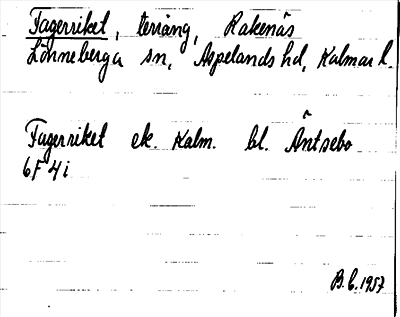 Fagerriket, terräng, Rakenäs
Lönneberga sn, Aspelands hd, Kalmar l.
Fagerriket ek. Kalm. bl. Äntsebo
6F 4i
B.C. 1957